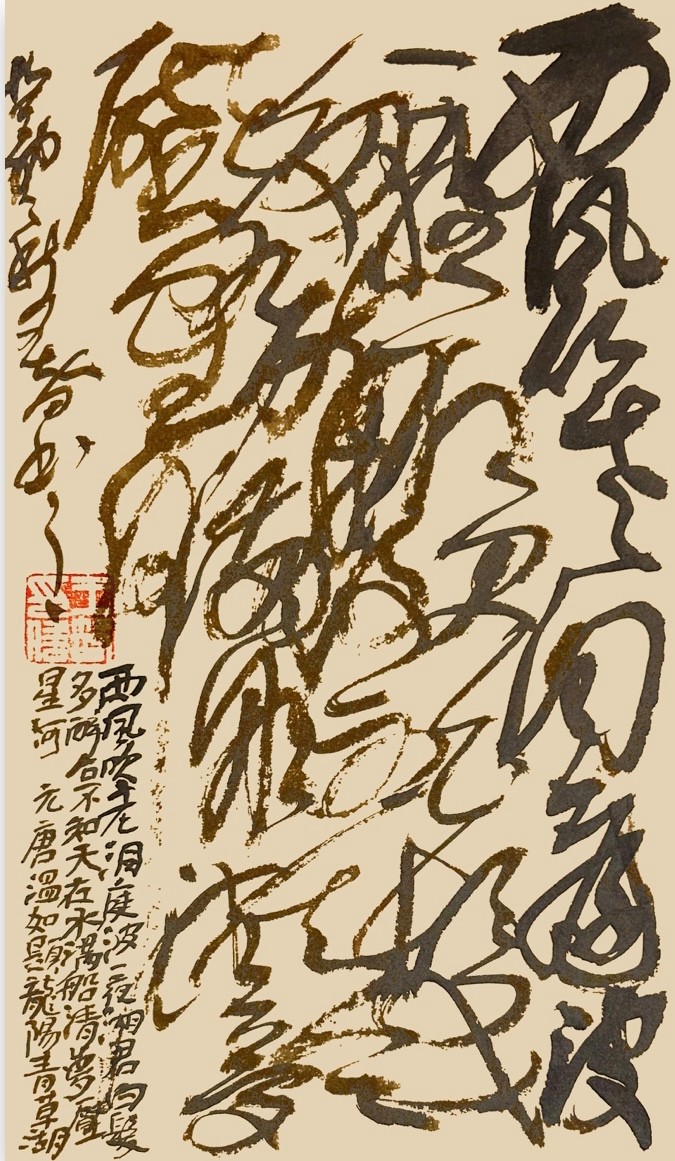 西風吹老洞庭波
一夜湘君白髮
多醉后不知天在水
滿船清夢
壓星河
西風吹老洞庭波一夜湘君白髮
多醉后不知天在水滿船清夢壓
星河 元 唐溫如題龍陽青草湖